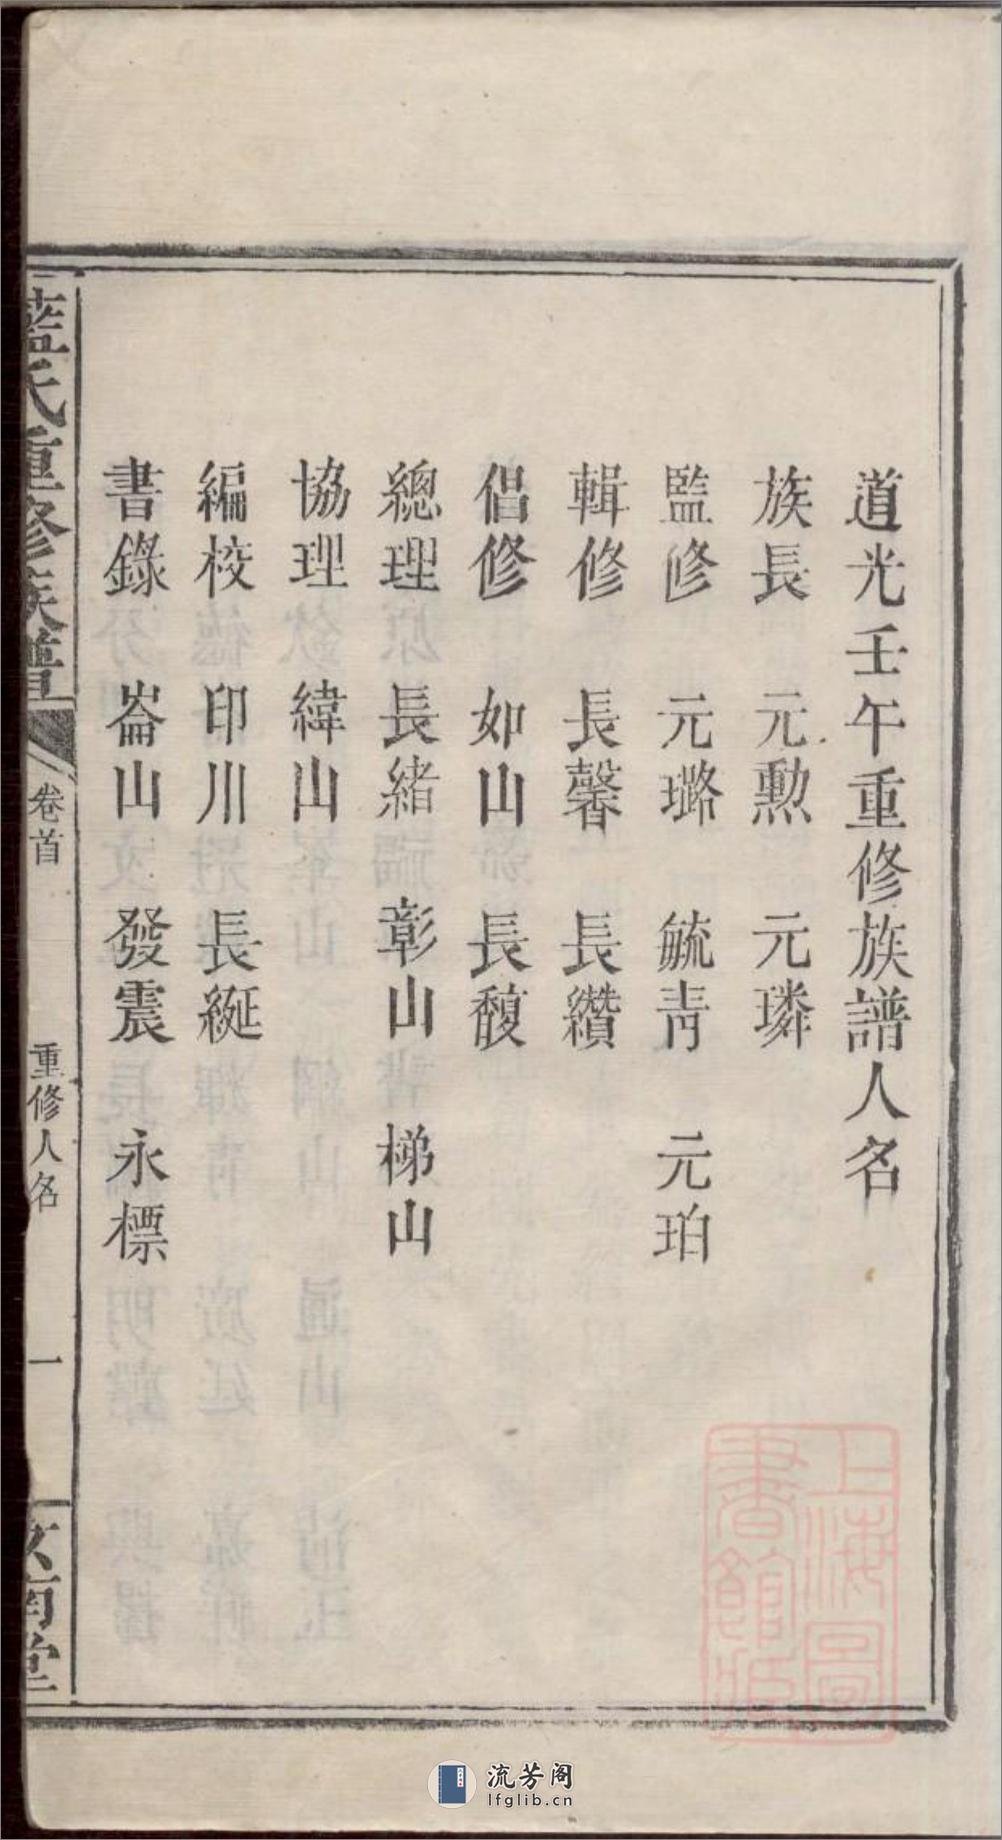 道光壬午重修族譜人名
族長 元勲 元璘
監修 元璐 毓靑 元珀
輯修 長馨 長纘
倡修 如山 長馥
總理 長緒 彰山 梯山
協理 緯山
編校 印川 長綖
書錄 崙山 發震 永標
藍氏重修族譜 卷首 重修人名 一
上海圖書館藏
流芳阁
lfglib.cn